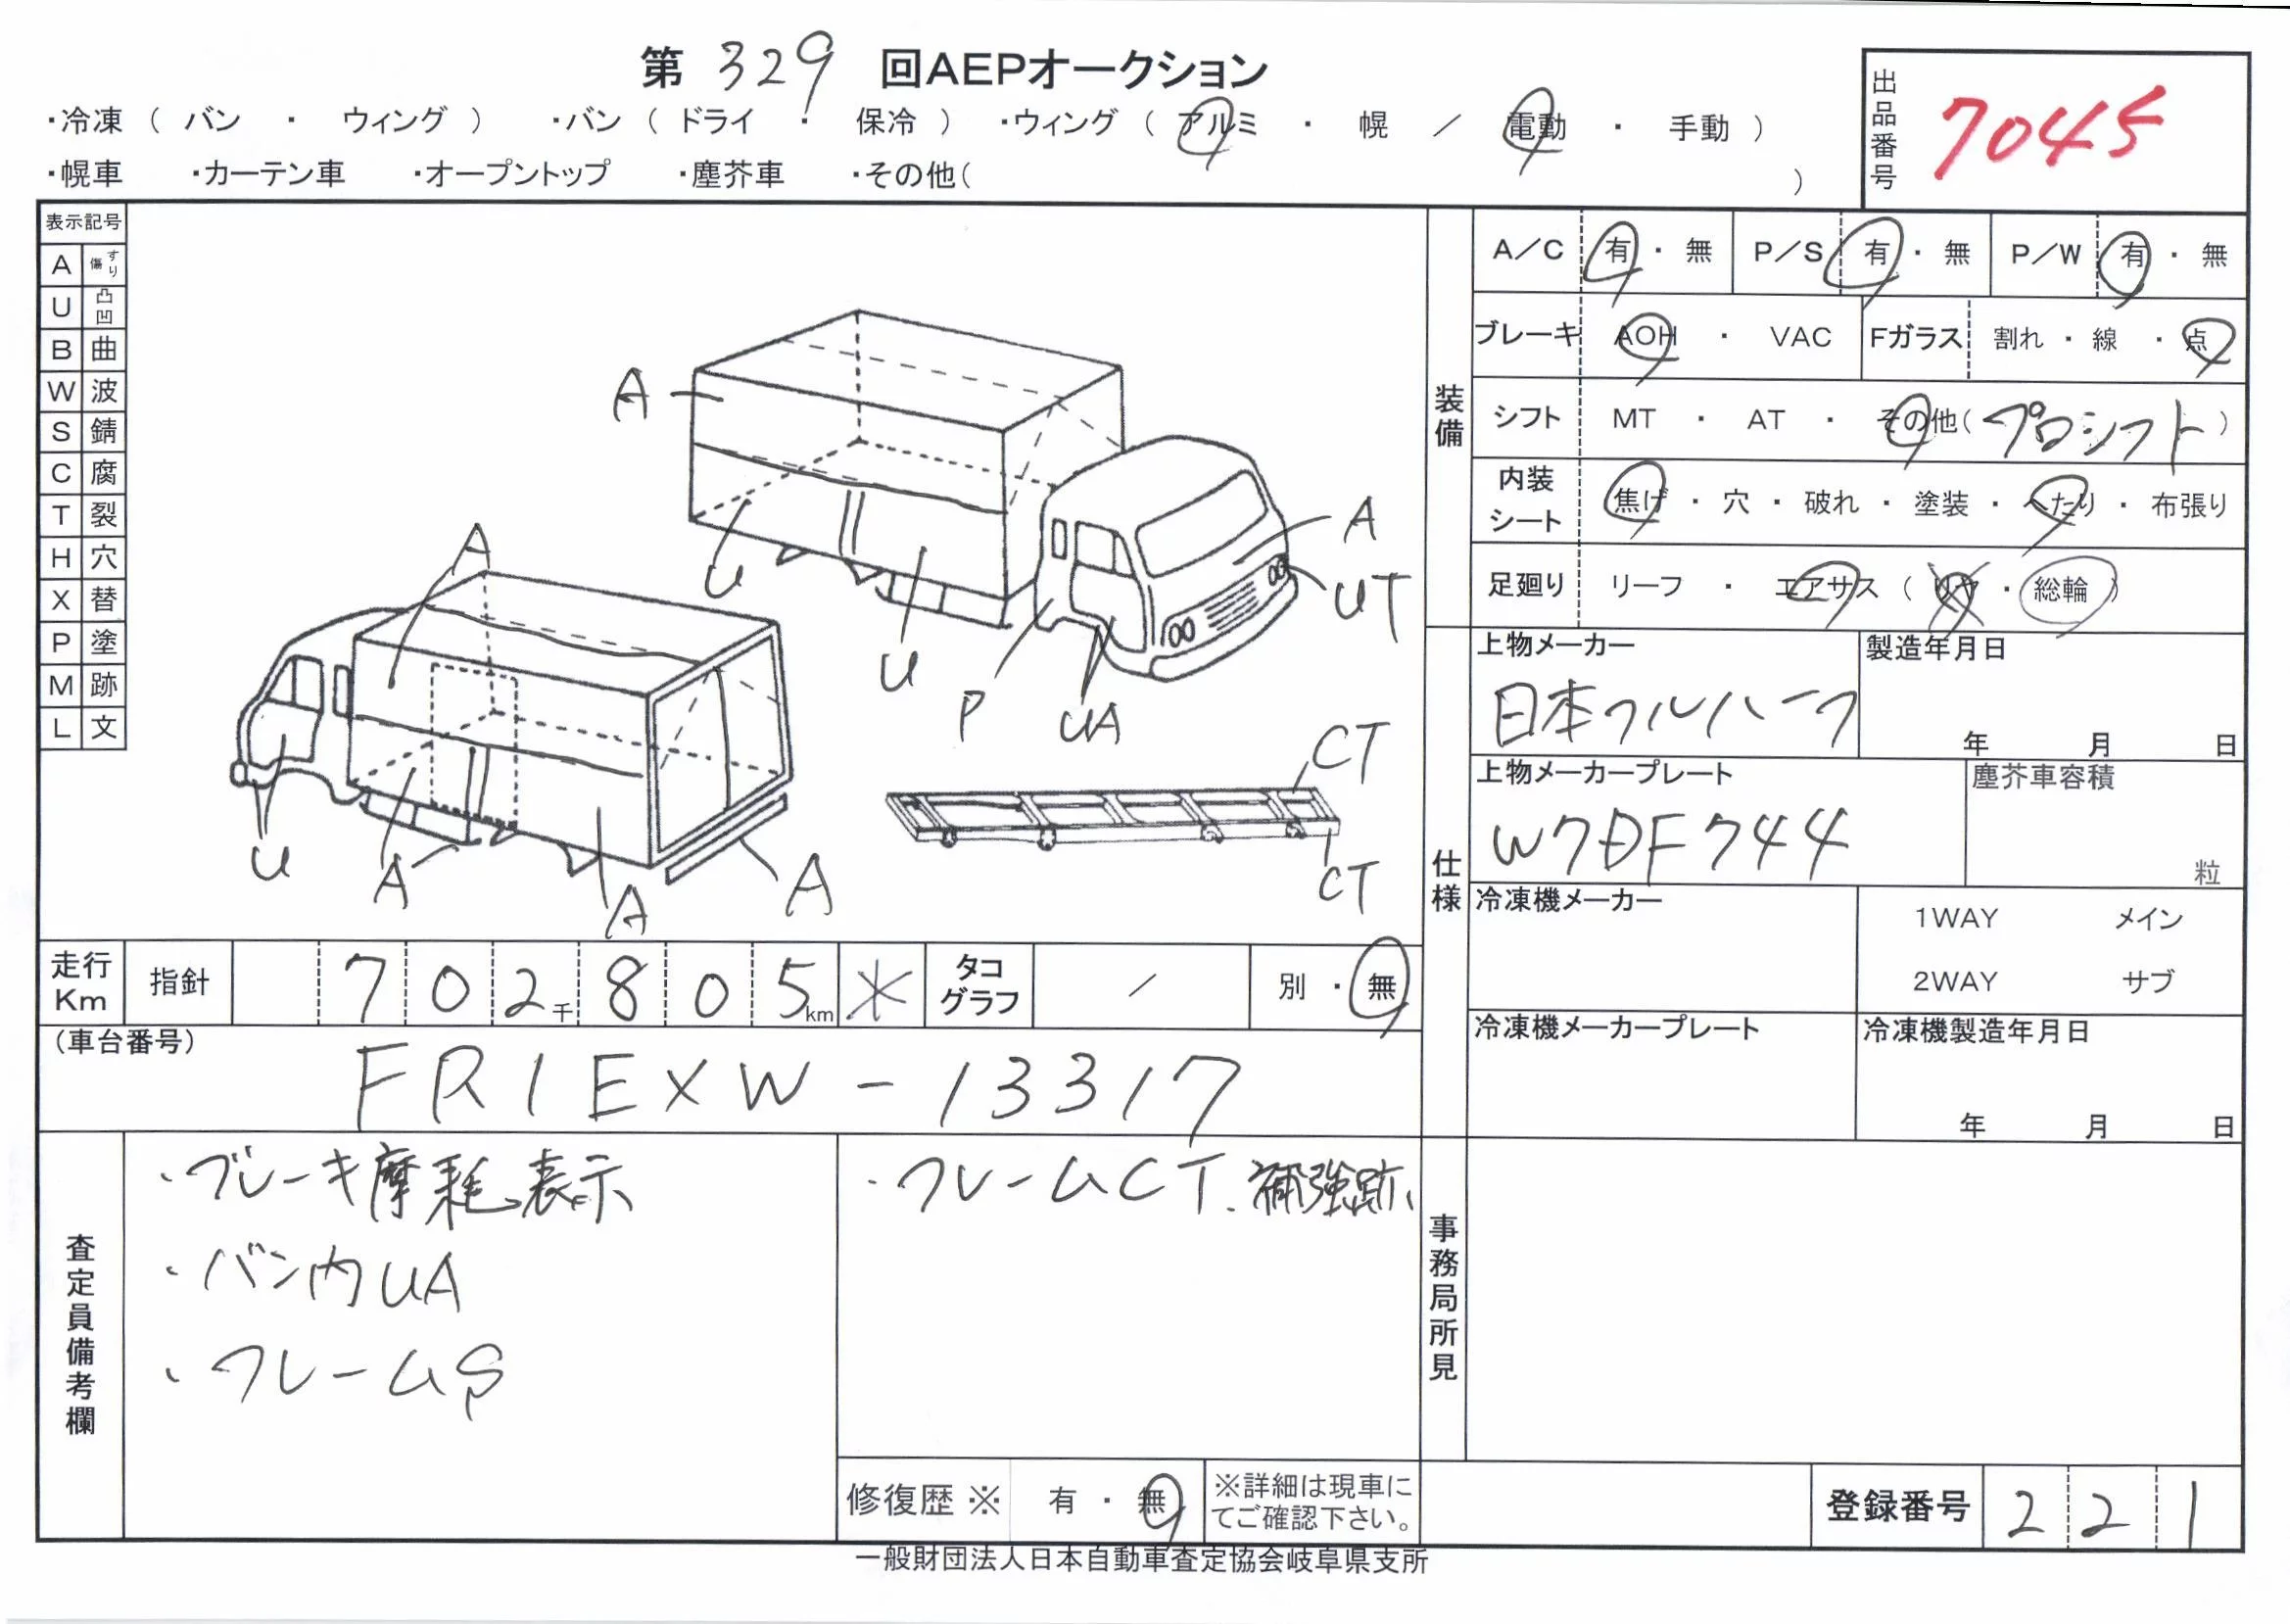 第 329 回AEPオークション
・冷凍（ バン ・ ウィング ） ・バン（ ドライ ・ 保冷 ） ・ウィング（ アルミ ・ 幌 ／ 電動 ・ 手動 ）
・幌車 ・カーテン車 ・オープントップ ・塵芥車 ・その他（ ）
出品番号 7045
表示記号
A すり傷
U 凸凹
B 曲
W 波
S 錆
C 腐
T 裂
H 穴
X 替
P 塗
M 跡
L 文
A
A
U
UT
U
P
UA
A
U
A
A
A
CT
CT
装備
A／C 有 ・ 無 P／S 有 ・ 無 P／W 有 ・ 無
ブレーキ AOH ・ VAC Fガラス 割れ ・ 線 ・ 点
シフト MT ・ AT ・ その他（ プロシフト ）
内装シート 焦げ ・ 穴 ・ 破れ ・ 塗装 ・ へたり ・ 布張り
足廻り リーフ ・ エアサス （ リヤ ・ 総輪 ）
仕様
上物メーカー 製造年月日
日本フルハーフ 年 月 日
上物メーカープレート 塵芥車容積
W7DF744 粒
冷凍機メーカー 1WAY メイン
2WAY サブ
冷凍機メーカープレート 冷凍機製造年月日
年 月 日
走行Km 指針 7 0 2千 8 0 5km ＊ タコグラフ ／ 別 ・ 無
（車台番号）
FR1EXW-13317
査定員備考欄
・ブレーキ摩耗表示
・バン内UA
・フレームS
・フレームCT、補強跡、
事務局所見
修復歴 ※ 有 ・ 無 ※詳細は現車にてご確認下さい。
登録番号 2 2 1
一般財団法人日本自動車査定協会岐阜県支所